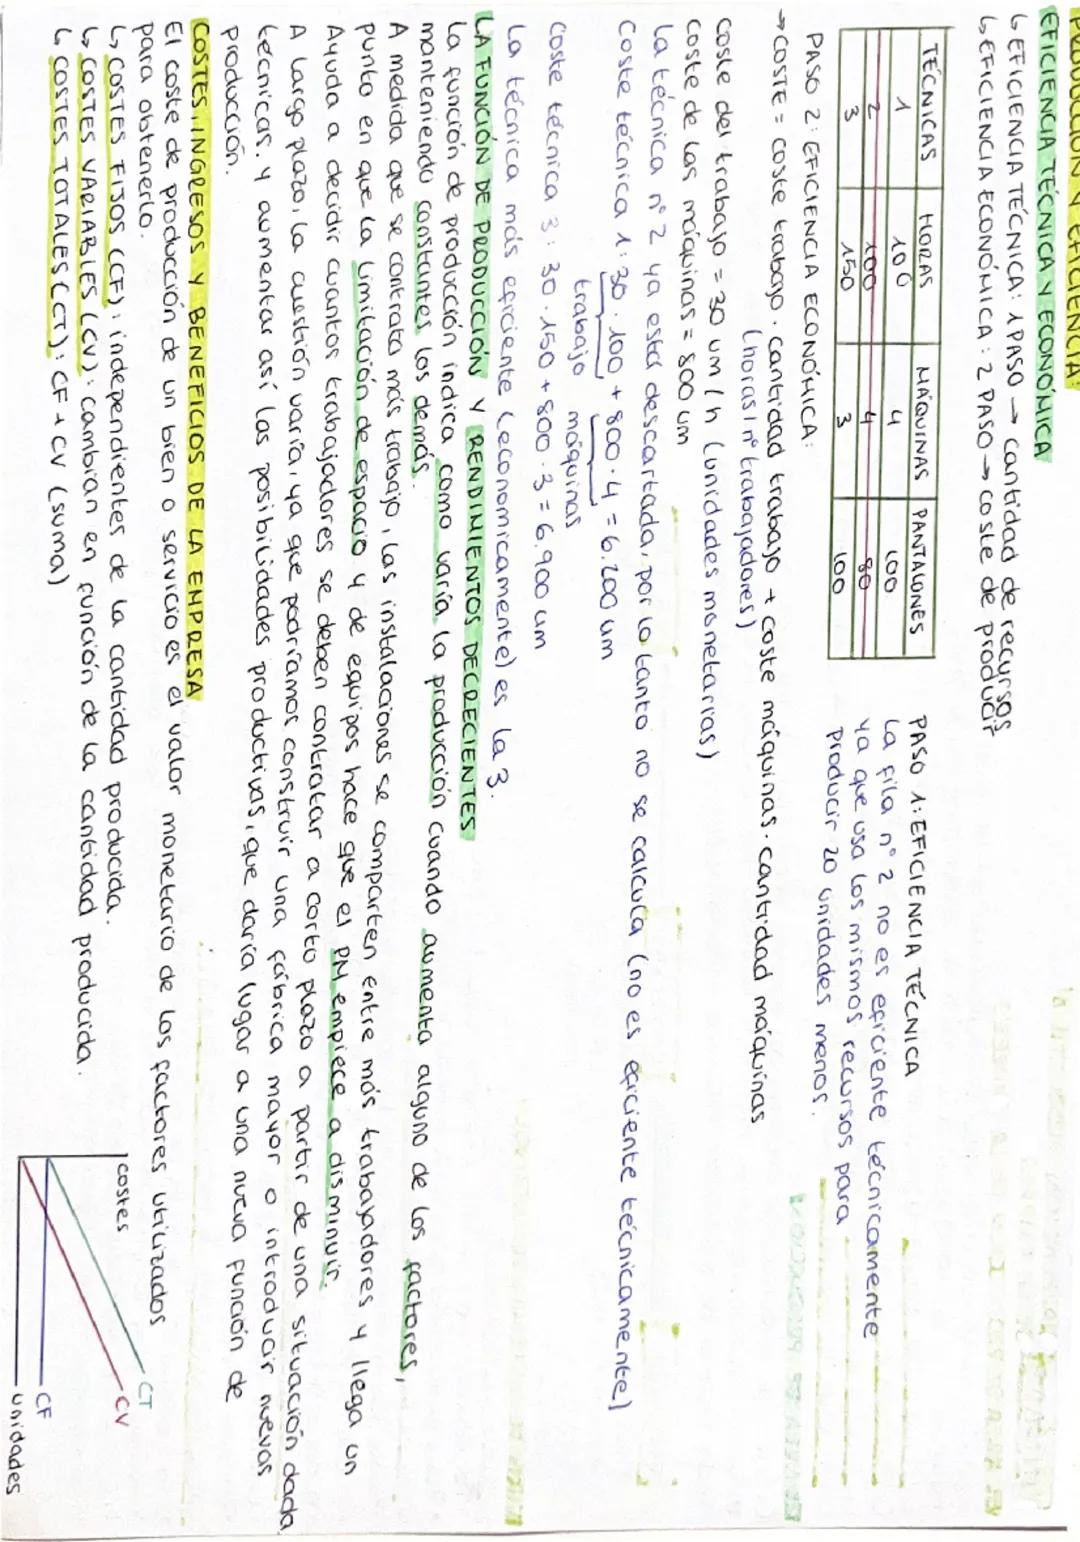 PRODUCCIÓN Y EFICIENCIA:
EFICIENCIA TÉCNICA Y ECONÓMICA
↳ EFICIENCIA TÉCNICA: 1 PASO → cantidad de recursos
↳ EFICIENCIA ECONÓMICA: 2 PASO → coste de producir
TÉCNICAS HORAS MÁQUINAS PANTALONES
1 100 4 100
2 100 4 80
3 150 3 100
PASO 1: EFICIENCIA TÉCNICA
La fila nº 2 no es eficiente técnicamente
ya que usa los mismos recursos para
producir 20 unidades menos.
PASO 2: EFICIENCIA ECONÓMICA:
→ COSTE = coste trabajo · cantidad trabajo + coste máquinas · cantidad máquinas
(horas/nº trabajadores)
coste del trabajo = 30 um/h (unidades monetarias)
coste de las máquinas = 800 um
La técnica nº 2 ya está descartada, por lo tanto no se calcula (no es eficiente técnicamente)
Coste técnica 1: 30 · 100 + 800 · 4 = 6.200 um
trabajo máquinas
Coste técnica 3: 30 · 150 + 800 · 3 = 6.900 um
La técnica más eficiente (economicamente) es la 3.
LA FUNCIÓN DE PRODUCCIÓN Y RENDIMIENTOS DECRECIENTES
La función de producción indica como varía la producción cuando aumenta alguno de los factores,
manteniendo constantes los demás.
A medida que se contrata más trabajo, las instalaciones se comparten entre más trabajadores y llega un
punto en que la limitación de espacio y de equipos hace que el PM empiece a disminuir.
Ayuda a decidir cuantos trabajadores se deben contratar a corto plazo a partir de una situación dada
A largo plazo, la cuestión varía, ya que podríamos construir una fábrica mayor o introducir nuevas
técnicas. y aumentar así las posibilidades productivas, que daría lugar a una nueva función de
producción.
COSTES, INGRESOS Y BENEFICIOS DE LA EMPRESA
El coste de producción de un bien o servicio es el valor monetario de los factores utilizados
para obtenerlo.
↳ COSTES FIJOS (CF): independientes de la cantidad producida.
↳ COSTES VARIABLES (CV): cambian en función de la cantidad producida.
↳ COSTES TOTALES (CT): CF + CV (suma)
costes
CT
CV
CF
unidades